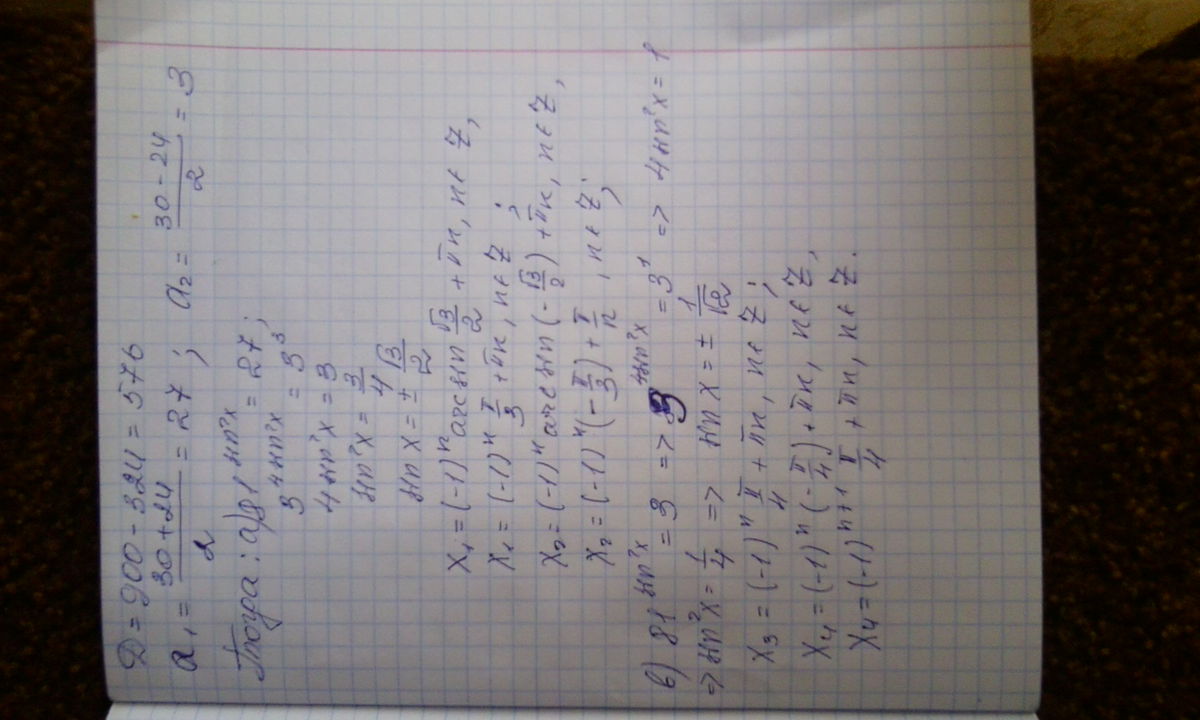 D = 900 - 324 = 576
a₁ = (30+24)/2 = 27 ; a₂ = (30-24)/2 = 3
Тогда: а) 81^(sin²x) = 27;
3^(4sin²x) = 3³
4sin²x = 3
sin²x = 3/4
sin x = ± √3/2
x₁ = (-1)ⁿ arcsin √3/2 + πn, n∈Z,
x₁ = (-1)ⁿ π/3 + πn, n∈Z ;
x₂ = (-1)ⁿ arcsin (-√3/2) + πn, n∈Z,
x₂ = (-1)ⁿ (-π/3) + π/n, n∈Z;
в) 81^(sin²x) = 3 => 3^(4sin²x) = 3¹ => 4sin²x = 1
=> sin²x = 1/4 => sin x = ± 1/√2
x₃ = (-1)ⁿ π/4 + πn, n∈Z;
x₄ = (-1)ⁿ (-π/4) + πn, n∈Z,
x₄ = (-1)ⁿ⁺¹ π/4 + πn, n∈Z.